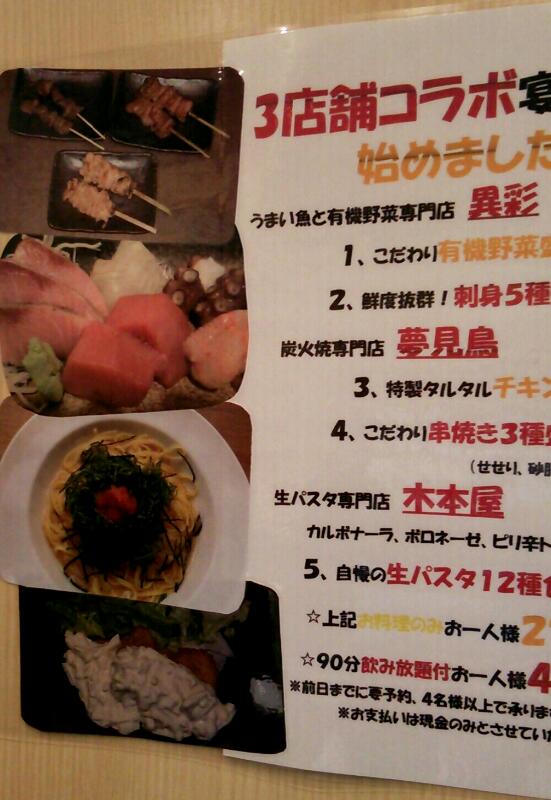 3店舗コラボ宴
始めました
うまい魚と有機野菜専門店 異彩
1、こだわり有機野菜盛
2、鮮度抜群!刺身5種
炭火焼専門店 夢見鳥
3、特製タルタルチキン
4、こだわり串焼き3種盛
(せせり、砂肝
生パスタ専門店 木本屋
カルボナーラ、ボロネーゼ、ピリ辛ト
5、自慢の生パスタ12種
☆上記お料理のみお一人様2
☆90分飲み放題付お一人様4
※前日までに要予約、4名様以上で承りま
※お支払いは現金のみとさせてい